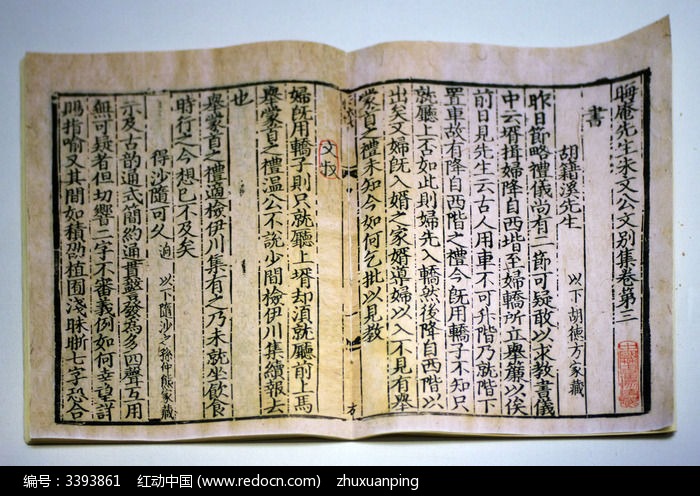 晦庵先生朱文公文別集卷第三
書
胡籍溪先生 以下胡德方家藏
昨日節略禮儀尚有二節可疑敢以求教書儀
中云壻揖婦降自西階至婦轎所立舉簾以俟
前日見先生云古人用車不可升階乃就階下
置車故有降自西階之禮今旣用轎子不知只
就廳上否如此則婦先入轎然後降自西階以
出矣又婦旣入婚之家壻導婦以入不見有舉
蒙首之禮未知今如何乞批以見教
婦旣用轎子則只就廳上壻却湏就廳前上馬
舉蒙首之禮溫公不說少間檢伊川集續報去
也
舉蒙首之禮適檢伊川集有之乃未就坐飲食
時行之今想已不及矣
得沙隨可久 迥 以下隨沙之孫仲熊家藏
示及古韵通式簡約通貫警發爲多四聲互用
無可疑者但切響二字不審義例如何幸望詳
賜指喻又其間如積植囿淺昧斷七字恐合
编号：3393861 红动中国 (www.redocn.com) zhuxuanping